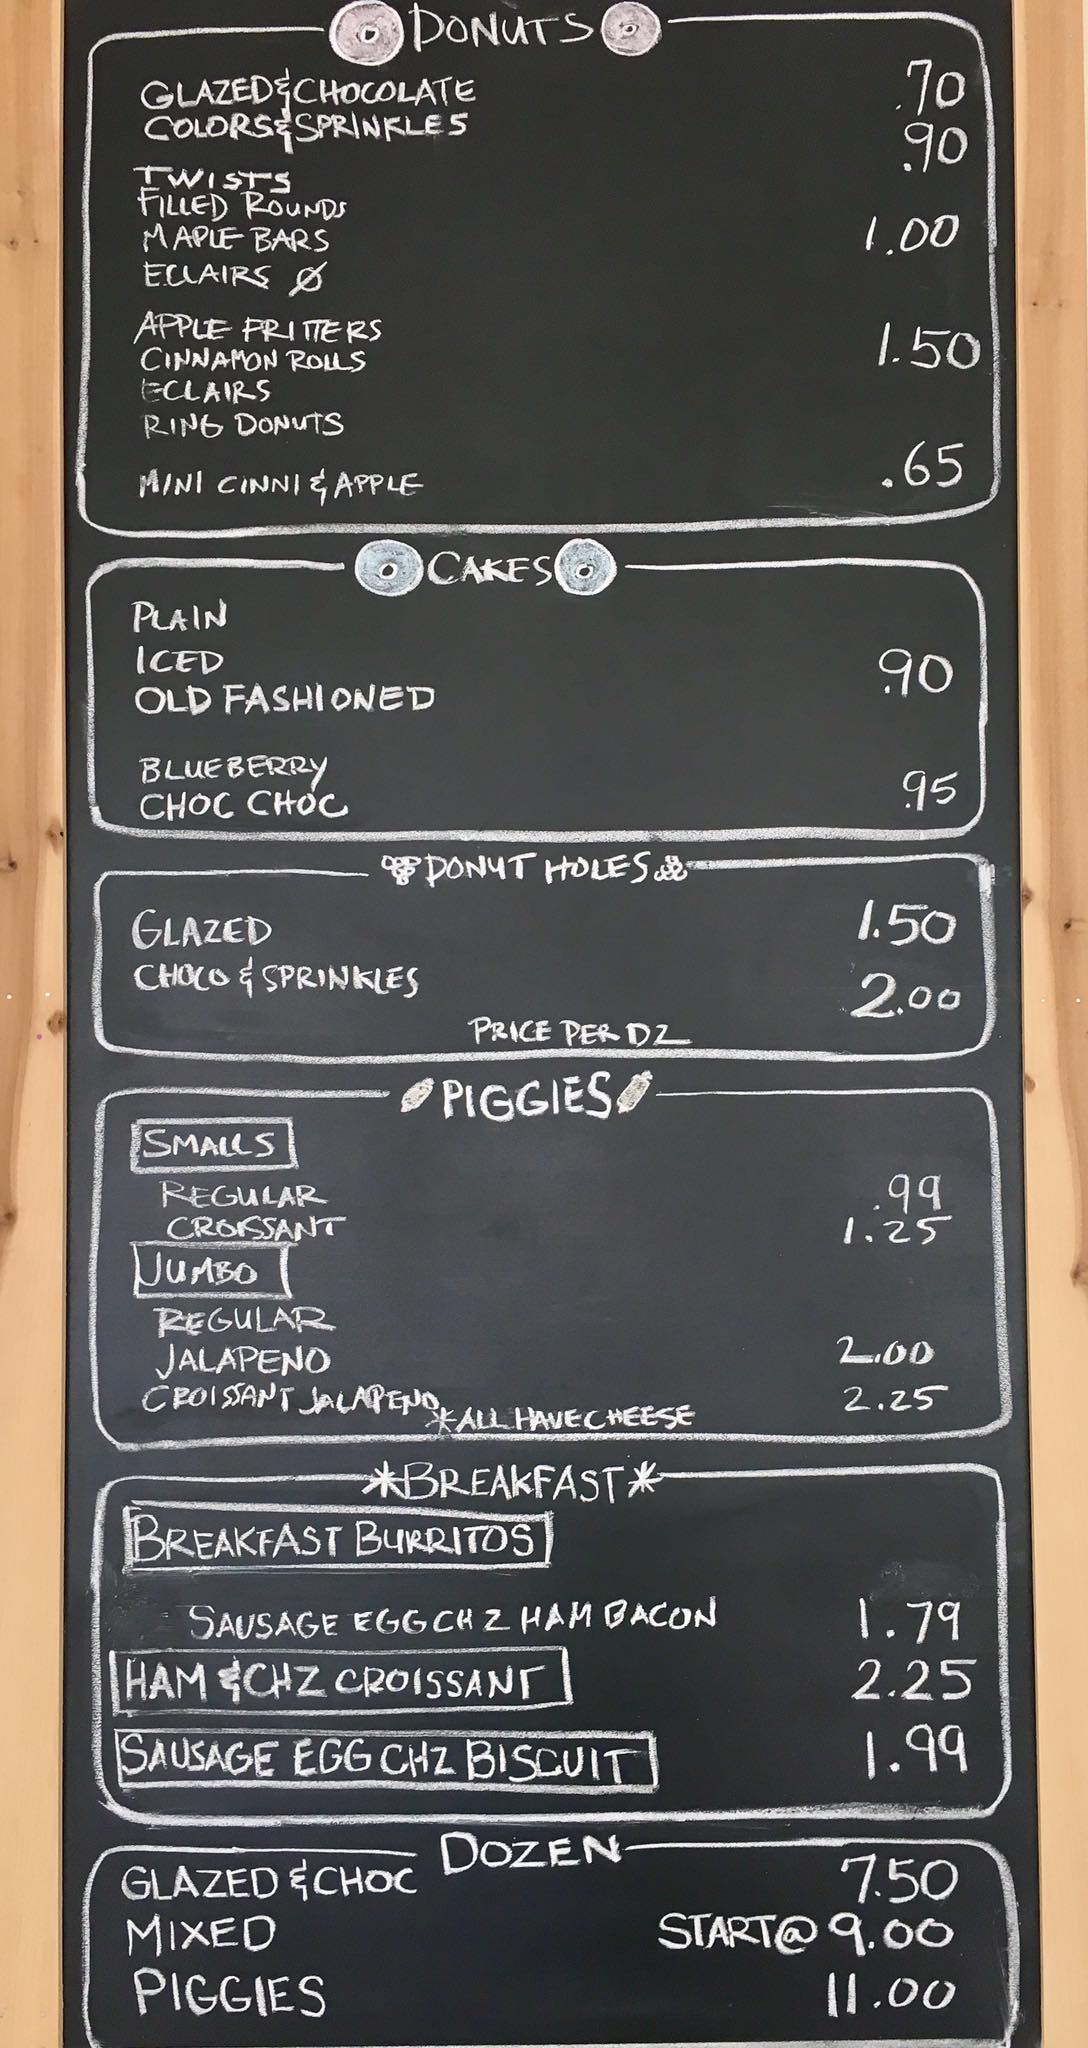 DONUTS
GLAZED & CHOCOLATE .70
COLORS & SPRINKLES .90
TWISTS
FILLED ROUNDS
MAPLE BARS 1.00
ECLAIRS Ø
APPLE FRITTERS
CINNAMON ROLLS 1.50
ECLAIRS
RING DONUTS
MINI CINNI & APPLE .65
CAKES
PLAIN
ICED .90
OLD FASHIONED
BLUEBERRY
CHOC CHOC .95
DONUT HOLES
GLAZED 1.50
CHOCO & SPRINKLES 2.00
PRICE PER DZ
PIGGIES
SMALLS
REGULAR .99
CROISSANT 1.25
JUMBO
REGULAR
JALAPENO 2.00
CROISSANT JALAPENO 2.25
*ALL HAVE CHEESE
*BREAKFAST*
BREAKFAST BURRITOS
SAUSAGE EGG CHZ HAM BACON 1.79
HAM & CHZ CROISSANT 2.25
SAUSAGE EGG CHZ BISCUIT 1.99
DOZEN
GLAZED & CHOC 7.50
MIXED START@ 9.00
PIGGIES 11.00